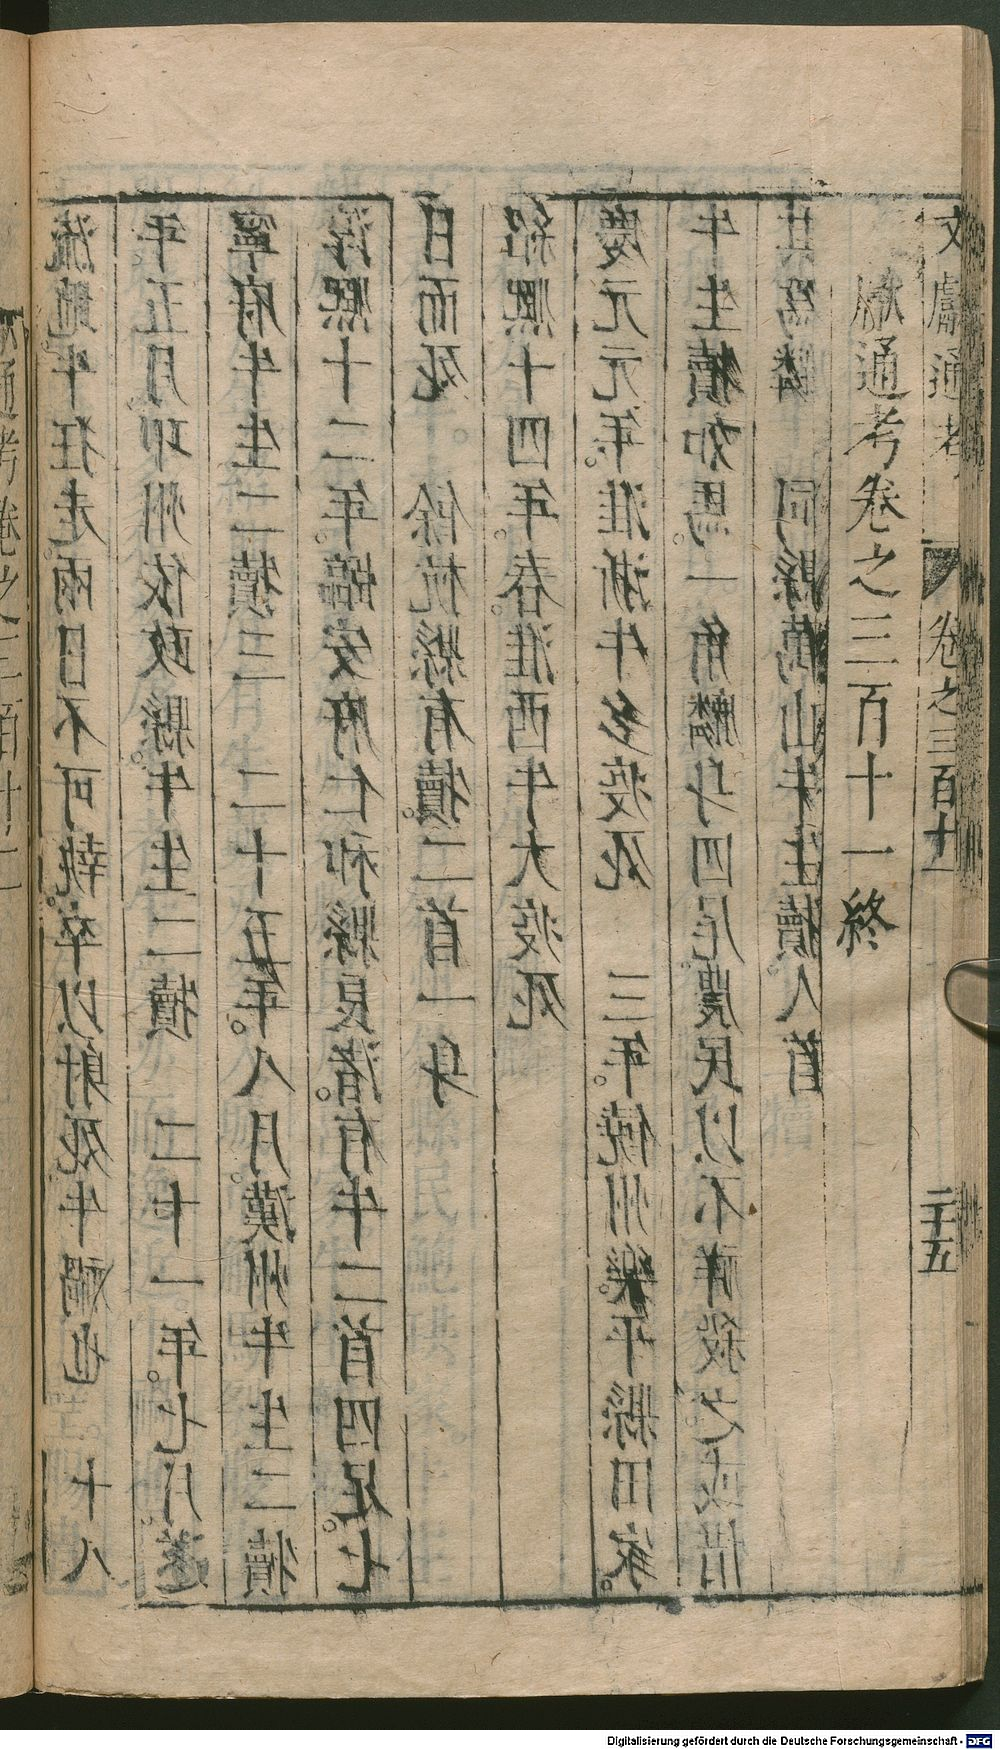 流馳牛狂走兩日不可執卒以射死牛禍也。十八
年五月邛州依政縣牛生二犢　二十一年。七月。遂
寧府牛生二犢三　二十五年。八月。漢州牛生二犢
淳熙十二年。臨安府仁和縣良渚。有牛二首四足。七
日而死。餘杭縣有犢。二首一身
紹熙十四年春。淮西牛大疫死
慶元元年。淮浙牛多疫死　三年。饒州樂平縣田家。
牛生犢如馬。一角麟身四尾。農民以不祥殺之。或惜
其為麟　同縣萬山牛生犢。人首
獻通考卷之三百十一終
文獻通考　卷之三百十一　二十五
通考卷之三百十二
Digitalisierung gefördert durch die Deutsche Forschungsgemeinschaft - DFG